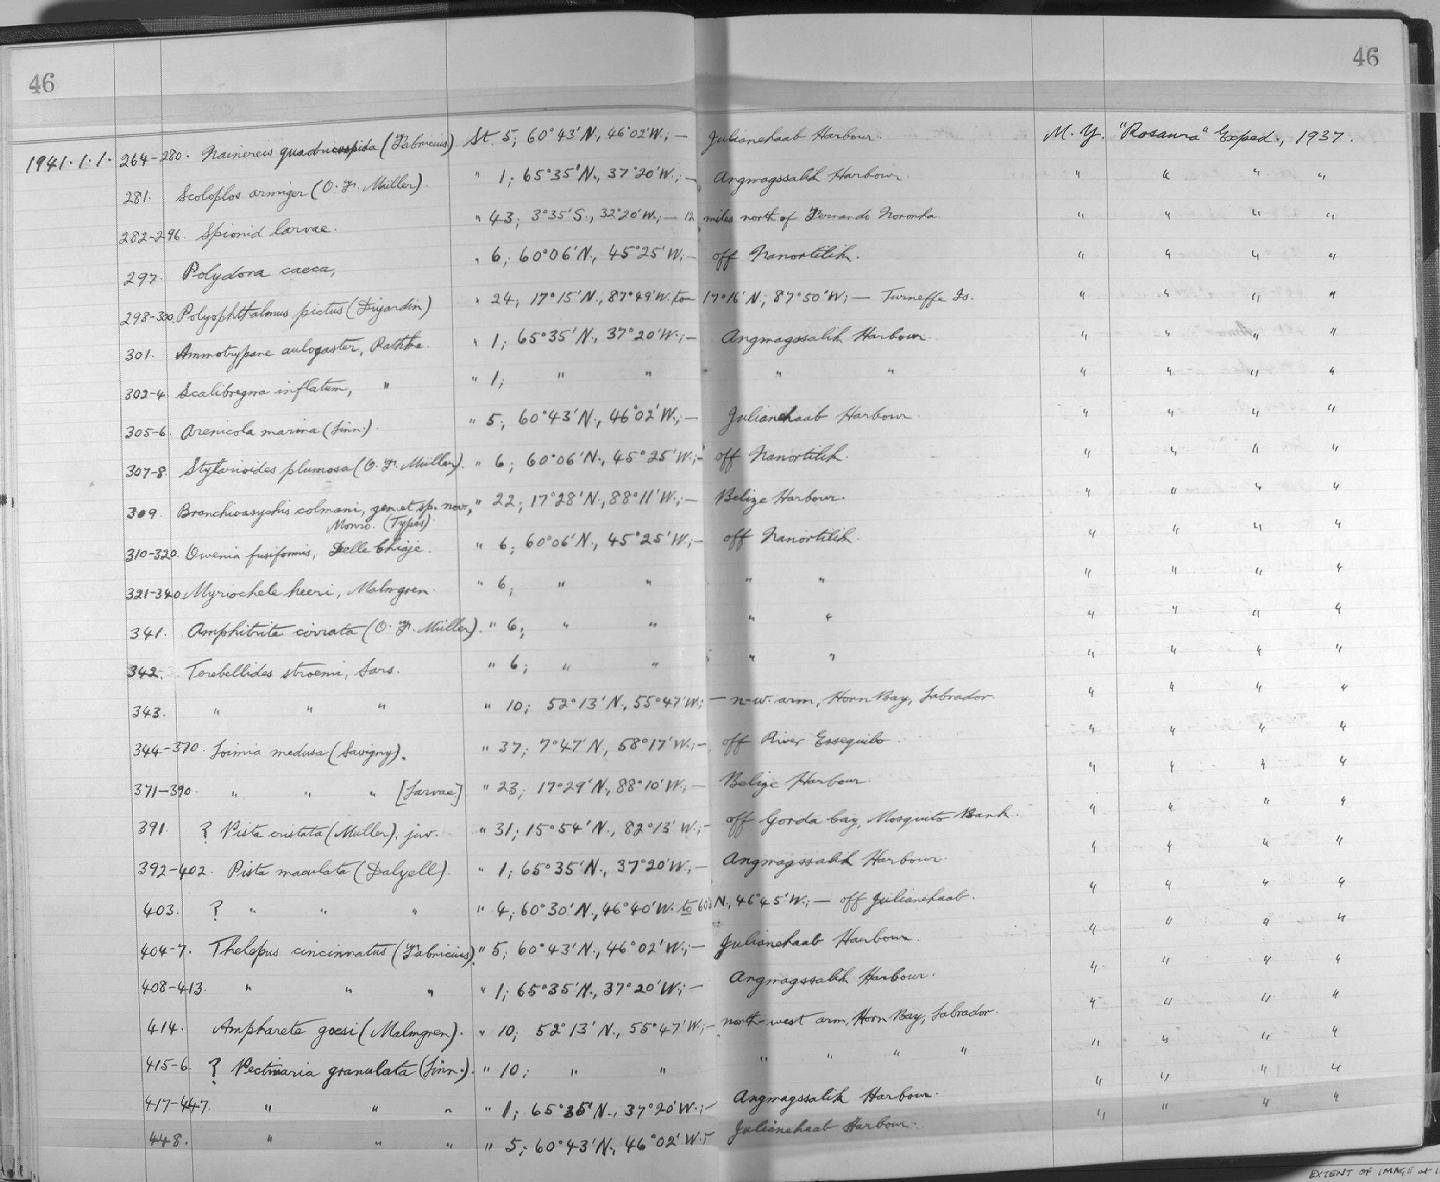 46
46
1941.1.1. 264-280. Nainereis quadricuspida (Fabricius) St. 5; 60°43'N., 46°02'W.;— Julianehaab Harbour. M.Y. "Rosaura" Exped., 1937.
281. Scoloplos armiger (O. F. Müller). " 1; 65°35'N., 37°20'W.;— Angmagssalik Harbour. " " " "
282-296. Spionid larvae. " 43; 3°35'S., 32°20'W.;— 12 miles north of Fernando Noronha. " " " "
297. Polydora caeca, " 6; 60°06'N., 45°25'W.;— off Nanortilik. " " " "
298-300. Polyophthalmus pictus (Dujardin) " 24; 17°15'N., 87°49'W. to 17°16'N.; 87°50'W;— Turneffe Is. " " " "
301. Ammotrypane aulogaster, Rathke. " 1; 65°35'N., 37°20'W.;— Angmagssalik Harbour. " " " "
302-4. Scalibregma inflatum, " " 1; " " " " " " " "
305-6. Arenicola marina (Linn.). " 5; 60°43'N., 46°02'W.;— Julianehaab Harbour. " " " "
307-8. Stylarioides plumosa (O. F. Müller). " 6; 60°06'N., 45°25'W.;— off Nanortilik. " " " "
309. Branchioasychis colmani, gen. et sp. nov., " 22; 17°28'N., 88°11'W;— Belize Harbour. " " " "
Monro. (Types)
310-320. Owenia fusiformis, Delle Chiaje. " 6; 60°06'N., 45°25'W.;— off Nanortilik. " " " "
321-340. Myriochele heeri, Malmgren. " 6; " " " " " " " "
341. Amphitrite cirrata (O. F. Müller). " 6; " " " " " " " "
342. Terebellides stroemi, Sars. " 6; " " " " " " " "
343. " " " " 10; 52°13'N., 55°47'W.;— n-w. arm, Horn Bay, Labrador. " " " "
344-370. Loimia medusa (Savigny). " 37; 7°47'N., 58°17'W.;— off River Essequibo " " " "
371-390. " " " [Larvae] " 23; 17°29'N., 88°10'W;— Belize Harbour. " " " "
391. ? Pista cristata (Müller), juv. " 31; 15°54'N., 82°13'W;— off Gorda Cay, Mosquito Bank. " " " "
392-402. Pista maculata (Dalyell). " 1; 65°35'N., 37°20'W;— Angmagssalik Harbour. " " " "
403. ? " " " " 4; 60°30'N., 46°40'W. to N., 46°45'W.;— off Julianehaab. " " " "
404-7. Thelepus cincinnatus (Fabricius). " 5; 60°43'N., 46°02'W.;— Julianehaab Harbour. " " " "
408-413. " " " " 1; 65°35'N., 37°20'W;— Angmagssalik Harbour. " " " "
414. Ampharete goesi (Malmgren). " 10; 52°13'N., 55°47'W.;— north-west arm, Horn Bay, Labrador. " " " "
415-6. ? Pectinaria granulata (Linn.). " 10; " " " " " " " " " "
417-447. " " " " 1; 65°35'N., 37°20'W.;— Angmagssalik Harbour. " " " "
448. " " " " 5; 60°43'N., 46°02'W.;— Julianehaab Harbour.
EXTENT OF IMAGE